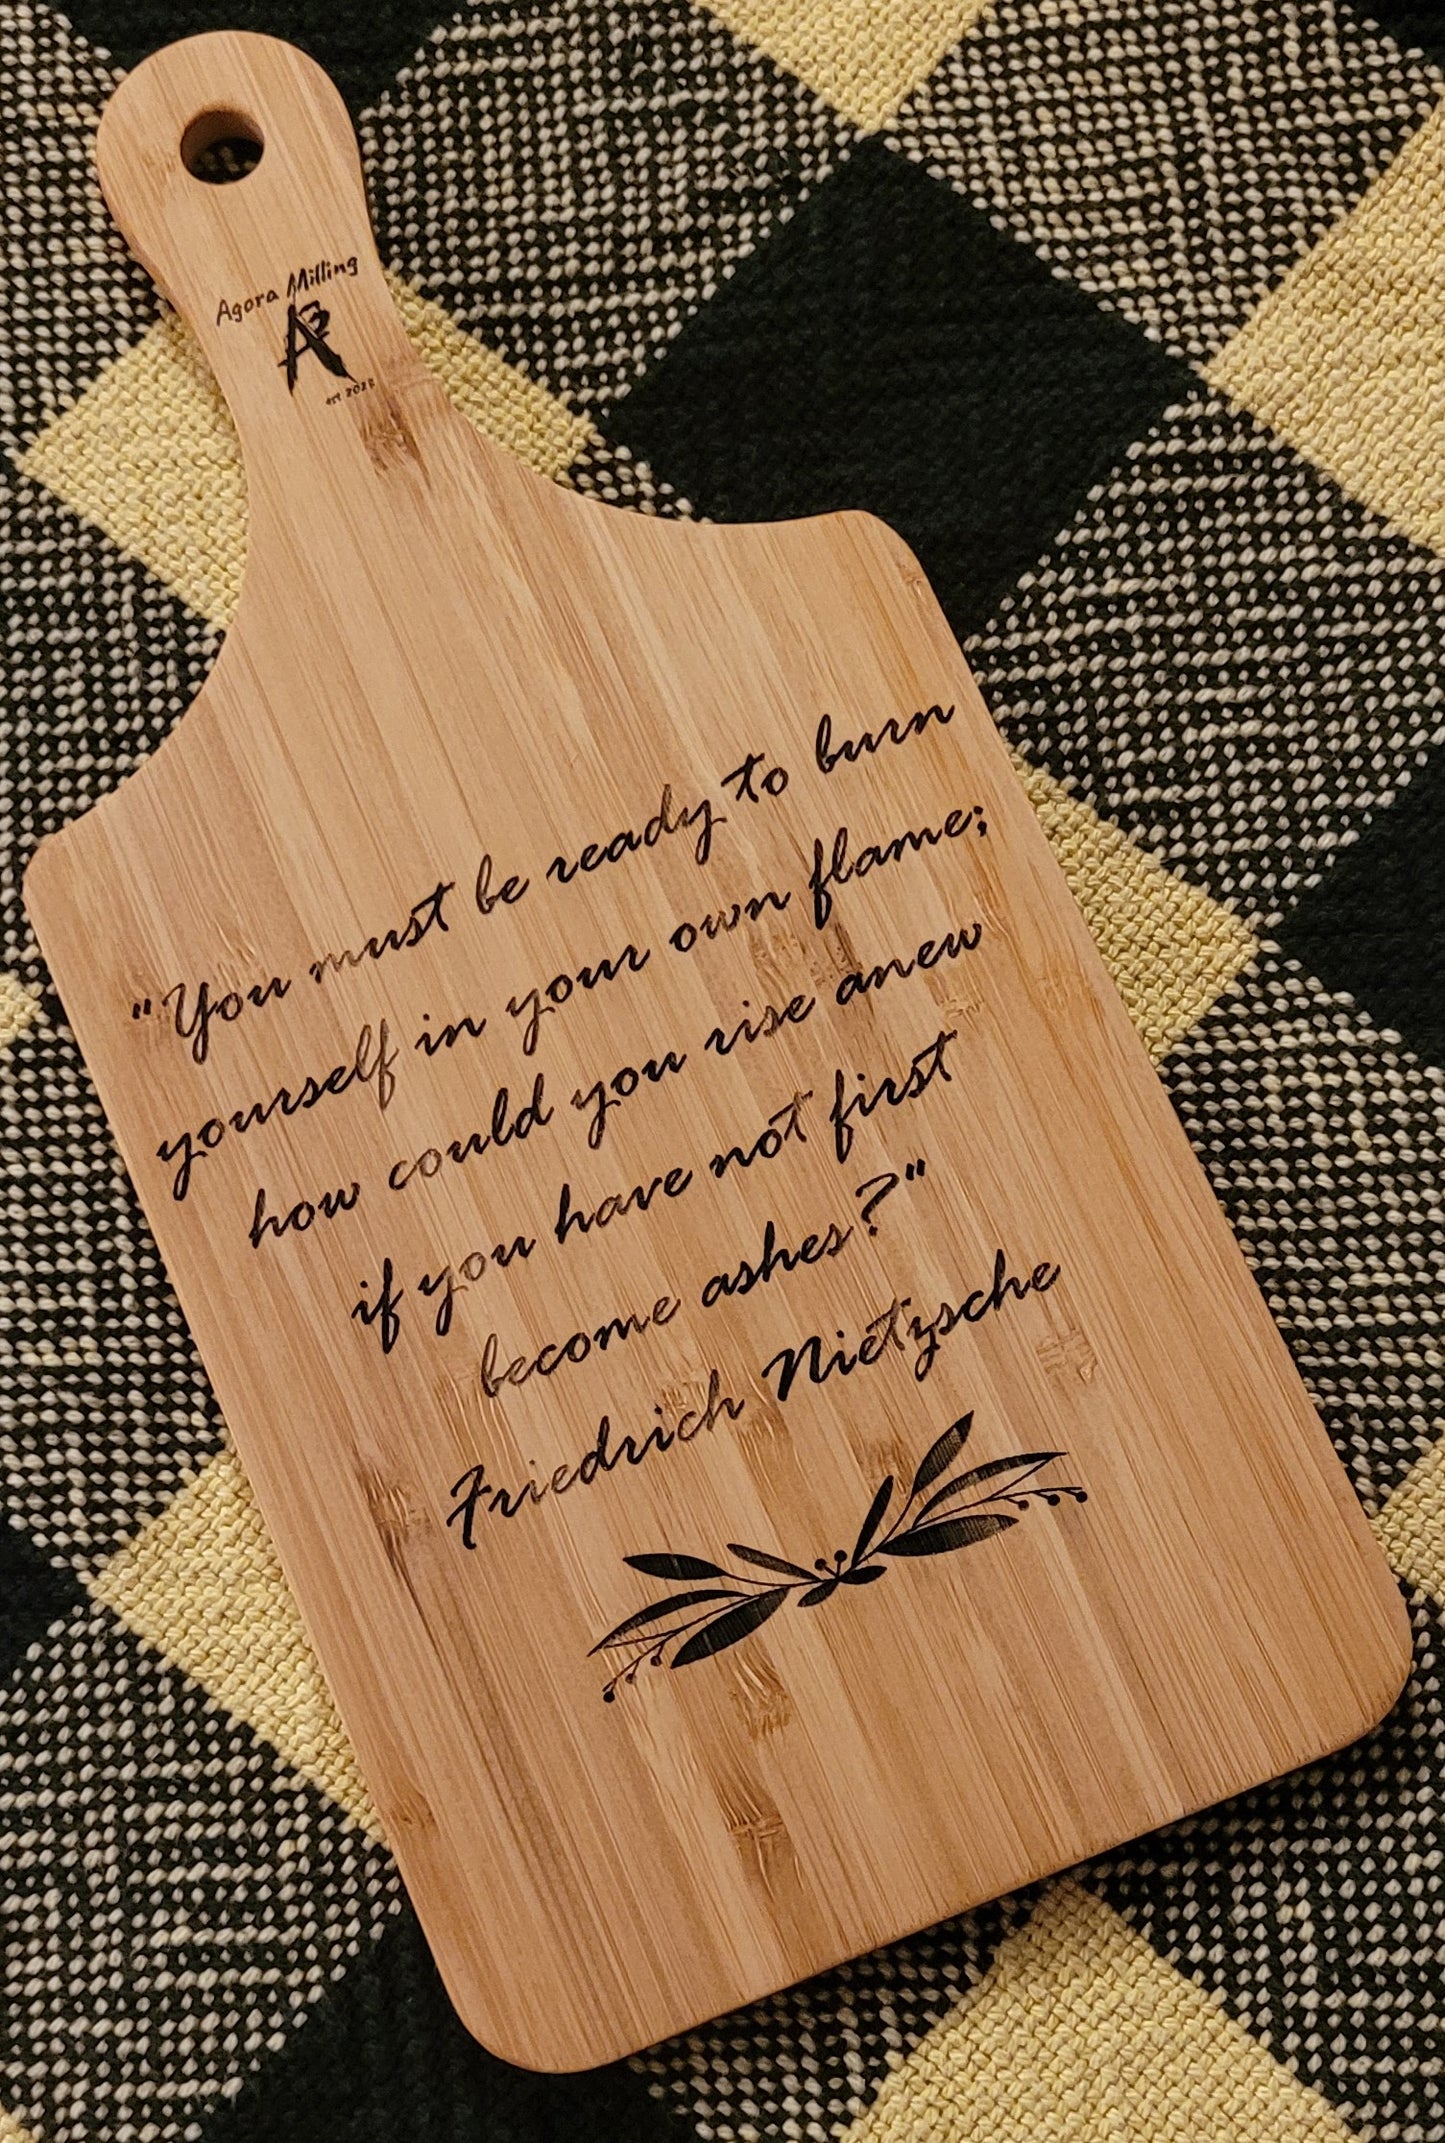 Agora Milling
A
est 2023
"You must be ready to burn
yourself in your own flame;
how could you rise anew
if you have not first
become ashes?"
Friedrich Nietzsche